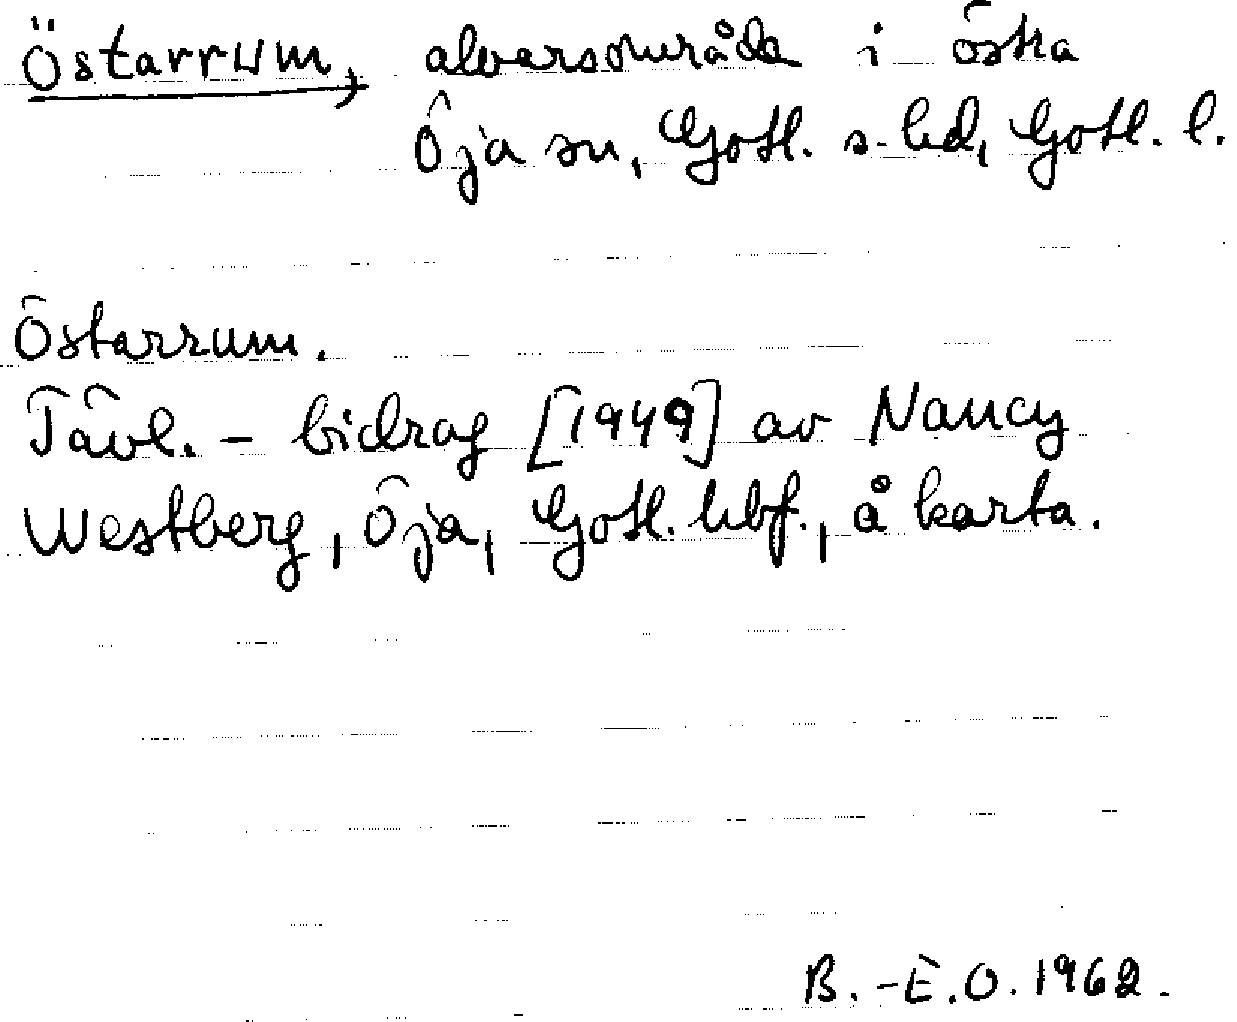 Östarrum, alvarsområde i östra
Öja sn, Gotl. s. hd, Gotl. l.
Östarrum.
Tävl. - bidrag [1949] av Nancy
Westberg, Öja, Gotl. hbf., å karta.
B.-E.O. 1962.